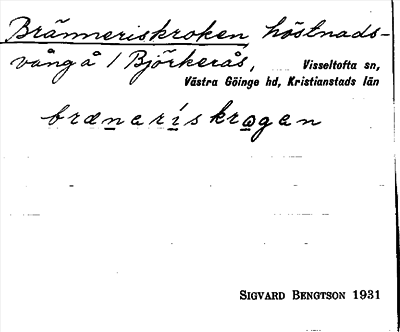 Bränneriskroken, höstnads-
vång å / Björkerås, Visseltofta sn,
Västra Göinge hd, Kristianstads län
bræneriskrogen
SIGVARD BENGTSON 1931